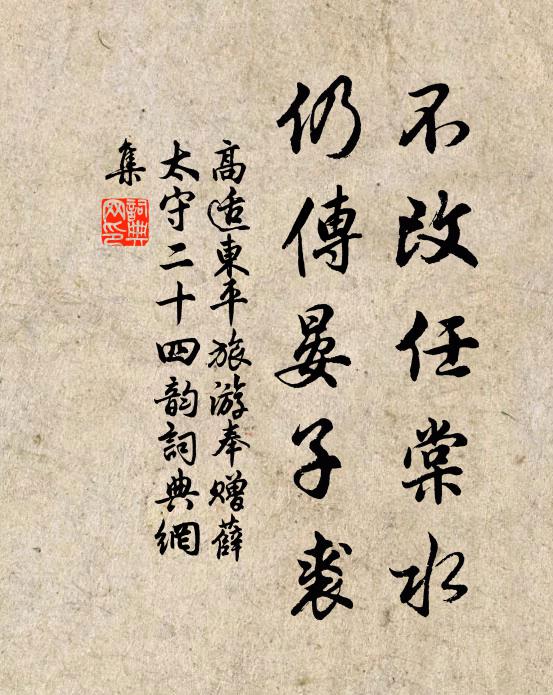 不改任棠水
仍傳晏子裘
高適東平旅游奉贈薛
太守二十四韵詞典網
集
詞典
网印